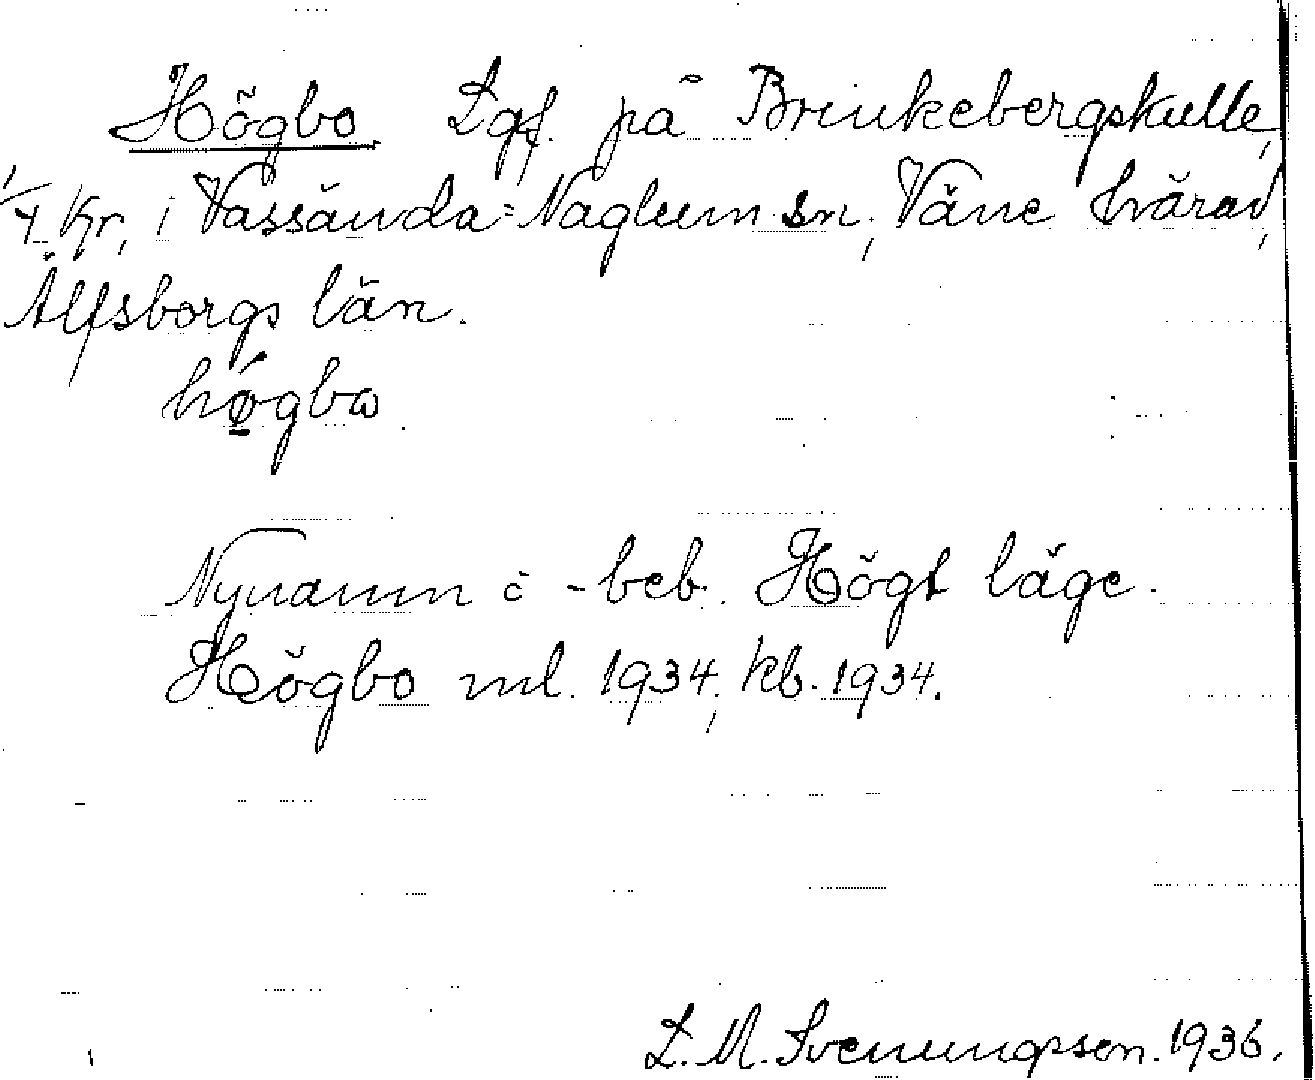 Högbo Lgf. på Brinkebergskulle,
1/4 kr, i Vassända=Naglum sn, Väne härad,
Älfsborgs län.
hǿ̱gbω
Nynamn å -beb. Högt läge.
Högbo ml. 1934, kb. 1934.
L. M. Svenungsson. 1936.